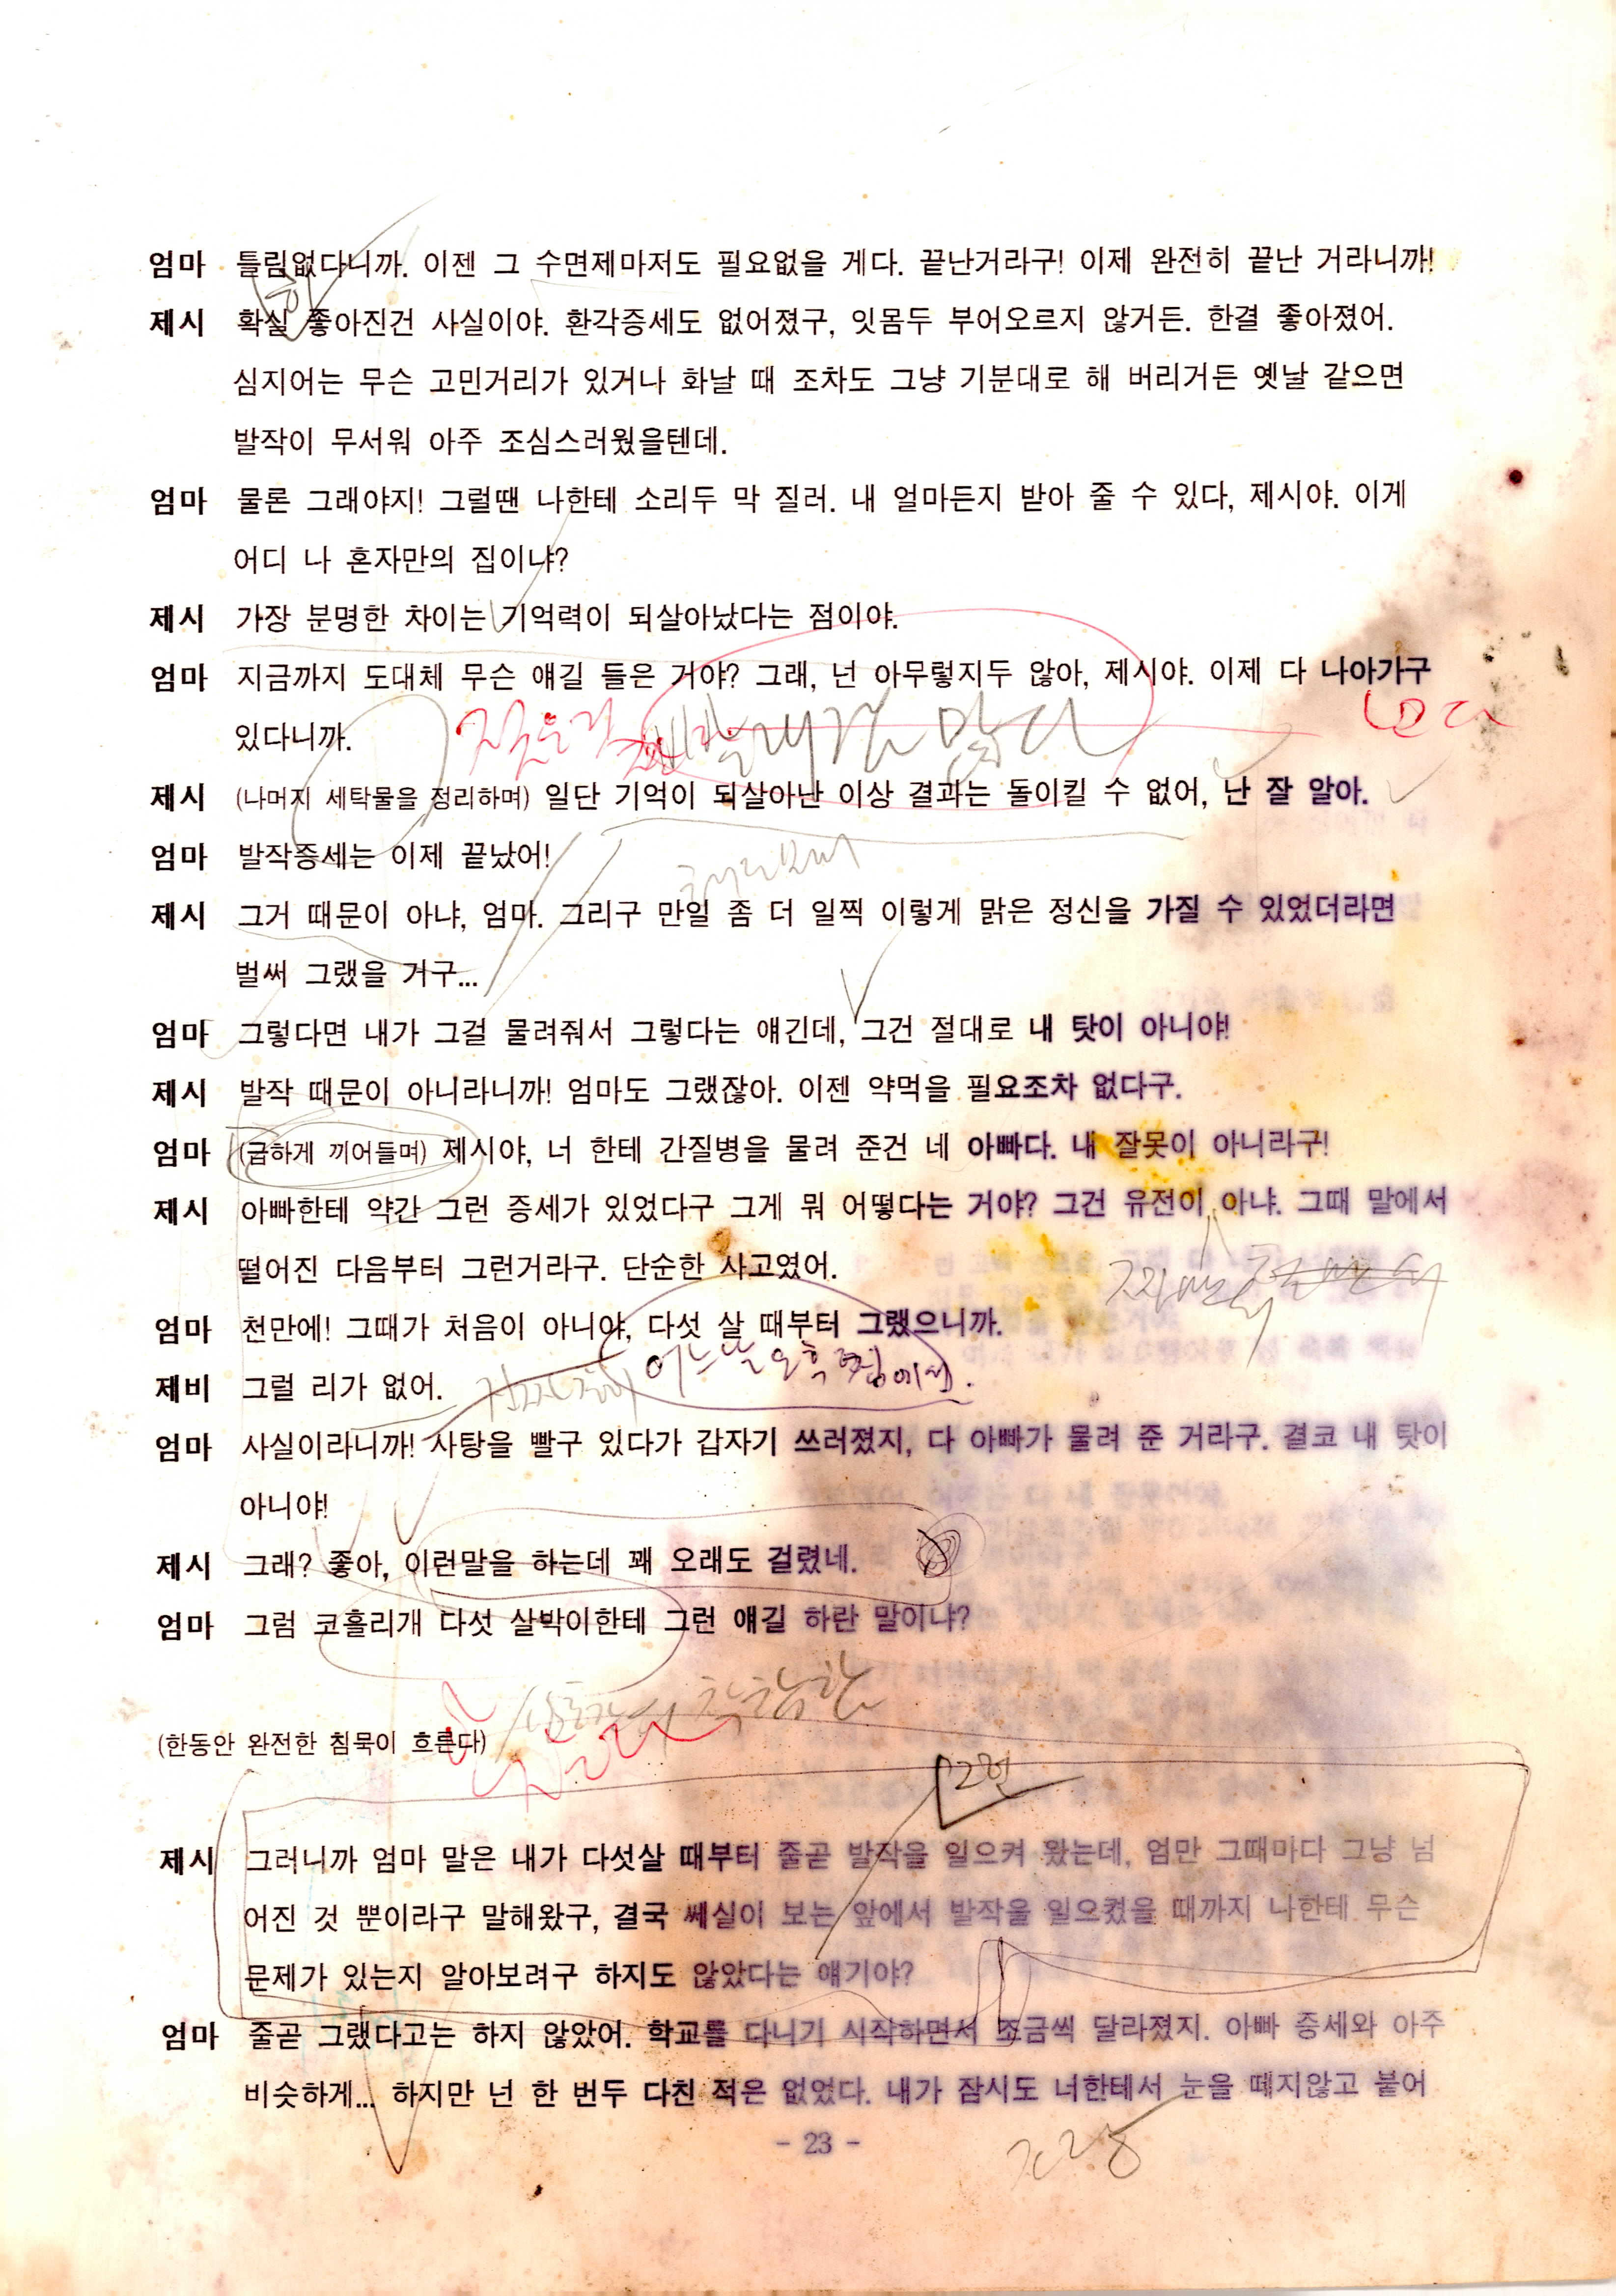 엄마 틀림없다니까. 이젠 그 수면제마저도 필요없을 게다. 끝난거라구! 이제 완전히 끝난 거라니까!
제시 확실 좋아진건 사실이야. 환각증세도 없어졌구, 잇몸두 부어오르지 않거든. 한결 좋아졌어.
심지어는 무슨 고민거리가 있거나 화날 때 조차도 그냥 기분대로 해 버리거든 옛날 같으면
발작이 무서워 아주 조심스러웠을텐데.
엄마 물론 그래야지! 그럴땐 나한테 소리두 막 질러. 내 얼마든지 받아 줄 수 있다, 제시야. 이게
어디 나 혼자만의 집이냐?
제시 가장 분명한 차이는 기억력이 되살아났다는 점이야.
엄마 지금까지 도대체 무슨 얘길 들은 거야? 그래, 넌 아무렇지두 않아, 제시야. 이제 다 나아가구
있다니까.
제시 (나머지 세탁물을 정리하며) 일단 기억이 되살아난 이상 결과는 돌이킬 수 없어, 난 잘 알아.
엄마 발작증세는 이제 끝났어!
제시 그거 때문이 아냐, 엄마. 그리구 만일 좀 더 일찍 이렇게 맑은 정신을 가질 수 있었더라면
벌써 그랬을 거구...
엄마 그렇다면 내가 그걸 물려줘서 그렇다는 얘긴데, 그건 절대로 내 탓이 아니야!
제시 발작 때문이 아니라니까! 엄마도 그랬잖아. 이젠 약먹을 필요조차 없다구.
엄마 (급하게 끼어들며) 제시야, 너 한테 간질병을 물려 준건 네 아빠다. 내 잘못이 아니라구!
제시 아빠한테 약간 그런 증세가 있었다구 그게 뭐 어떻다는 거야? 그건 유전이 아냐. 그때 말에서
떨어진 다음부터 그런거라구. 단순한 사고였어.
엄마 천만에! 그때가 처음이 아니야, 다섯 살 때부터 그랬으니까.
어느날 오후
제비 그럴 리가 없어.
엄마 사실이라니까! 사탕을 빨구 있다가 갑자기 쓰러졌지, 다 아빠가 물려 준 거라구. 결코 내 탓이
아니야!
제시 그래? 좋아, 이런말을 하는데 꽤 오래도 걸렸네.
엄마 그럼 코흘리개 다섯 살박이한테 그런 얘길 하란 말이냐?
(한동안 완전한 침묵이 흐른다)
제시 그러니까 엄마 말은 내가 다섯살 때부터 줄곧 발작을 일으켜 왔는데, 엄만 그때마다 그냥 넘
어진 것 뿐이라구 말해왔구, 결국 쎄실이 보는 앞에서 발작을 일으켰을 때까지 나한테 무슨
문제가 있는지 알아보려구 하지도 않았다는 얘기야?
엄마 줄곧 그랬다고는 하지 않았어. 학교를 다니기 시작하면서 조금씩 달라졌지. 아빠 증세와 아주
비슷하게... 하지만 넌 한 번두 다친 적은 없었다. 내가 잠시도 너한테서 눈을 떼지않고 붙어
- 23 -